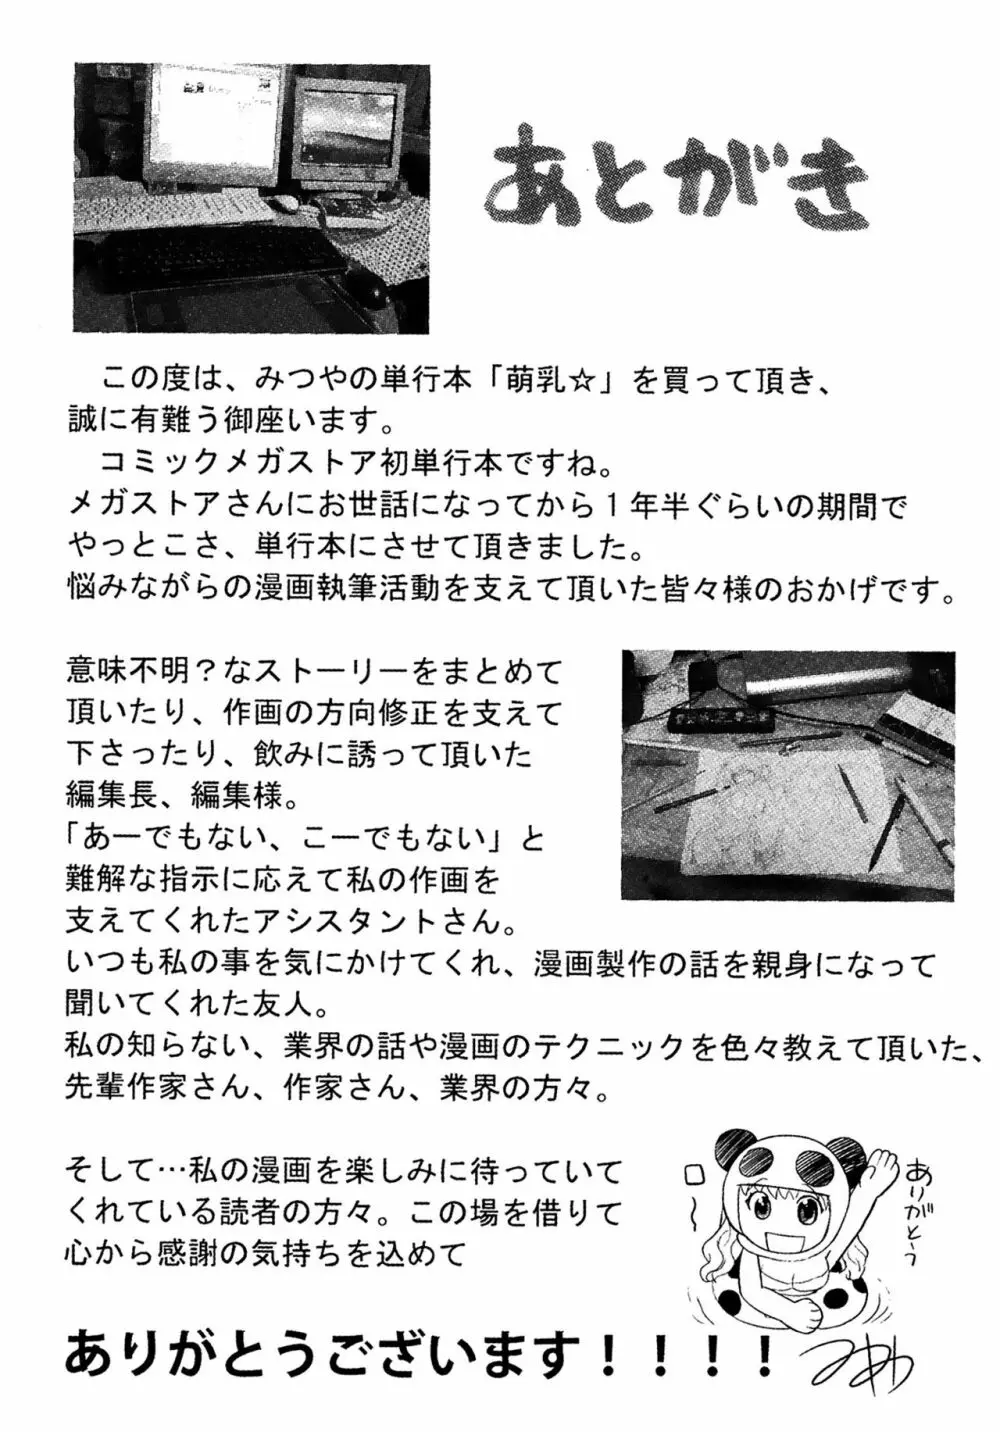 あとがき
この度は、みつやの単行本「萌乳☆」を買って頂き、
誠に有難う御座います。
コミックメガストア初単行本ですね。
メガストアさんにお世話になってから1年半ぐらいの期間で
やっとこさ、単行本にさせて頂きました。
悩みながらの漫画執筆活動を支えて頂いた皆々様のおかげです。
意味不明？なストーリーをまとめて
頂いたり、作画の方向修正を支えて
下さったり、飲みに誘って頂いた
編集長、編集様。
「あーでもない、こーでもない」と
難解な指示に応えて私の作画を
支えてくれたアシスタントさん。
いつも私の事を気にかけてくれ、漫画製作の話を親身になって
聞いてくれた友人。
私の知らない、業界の話や漫画のテクニックを色々教えて頂いた、
先輩作家さん、作家さん、業界の方々。
そして…私の漫画を楽しみに待っていて
くれている読者の方々。この場を借りて
心から感謝の気持ちを込めて
ありがとう
ありがとうございます！！！！